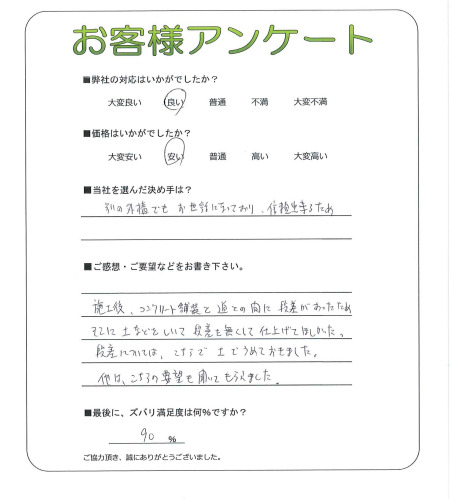 お客様アンケート
■弊社の対応はいかがでしたか？
大変良い 良い 普通 不満 大変不満
■価格はいかがでしたか？
大変安い 安い 普通 高い 大変高い
■当社を選んだ決め手は？
別の外構でも お世話になっており、信頼出来るため
■ご感想・ご要望などをお書き下さい。
施工後、コンクリート舗装と道との間に段差があったため
そこに土などをしいて段差を無くして仕上げてほしかった。
段差については、こちらで土でうめておきました。
他は、こちらの要望も聞いてもらえました。
■最後に、ズバリ満足度は何%ですか？
90 %
ご協力頂き、誠にありがとうございました。